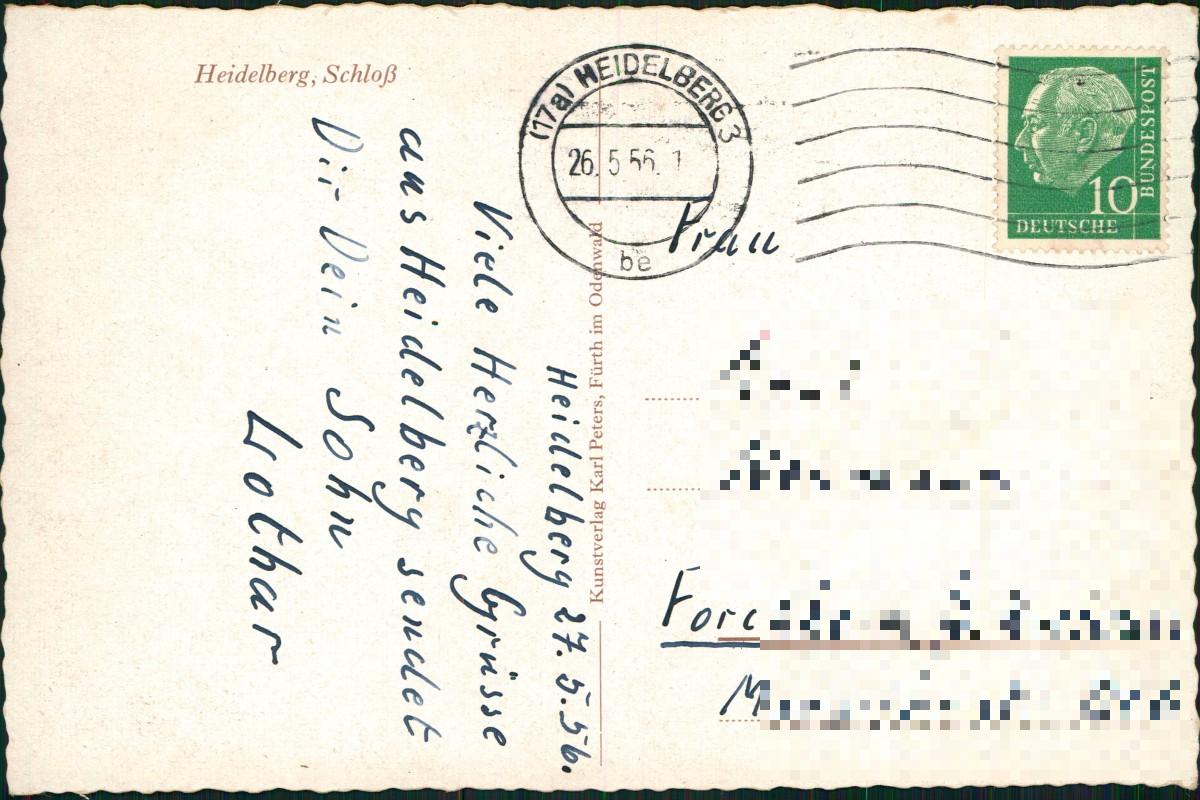 Heidelberg, Schloß
(17a) HEIDELBERG 3
26.5.56.
be
10
DEUTSCHE
BUNDESPOST
Heidelberg 27.5.56.
Viele Herzliche Grüsse
aus Heidelberg sendet
Dir Dein Sohn
Lothar
Kunstverlag Karl Peters, Fürth im Odenwald
Frau